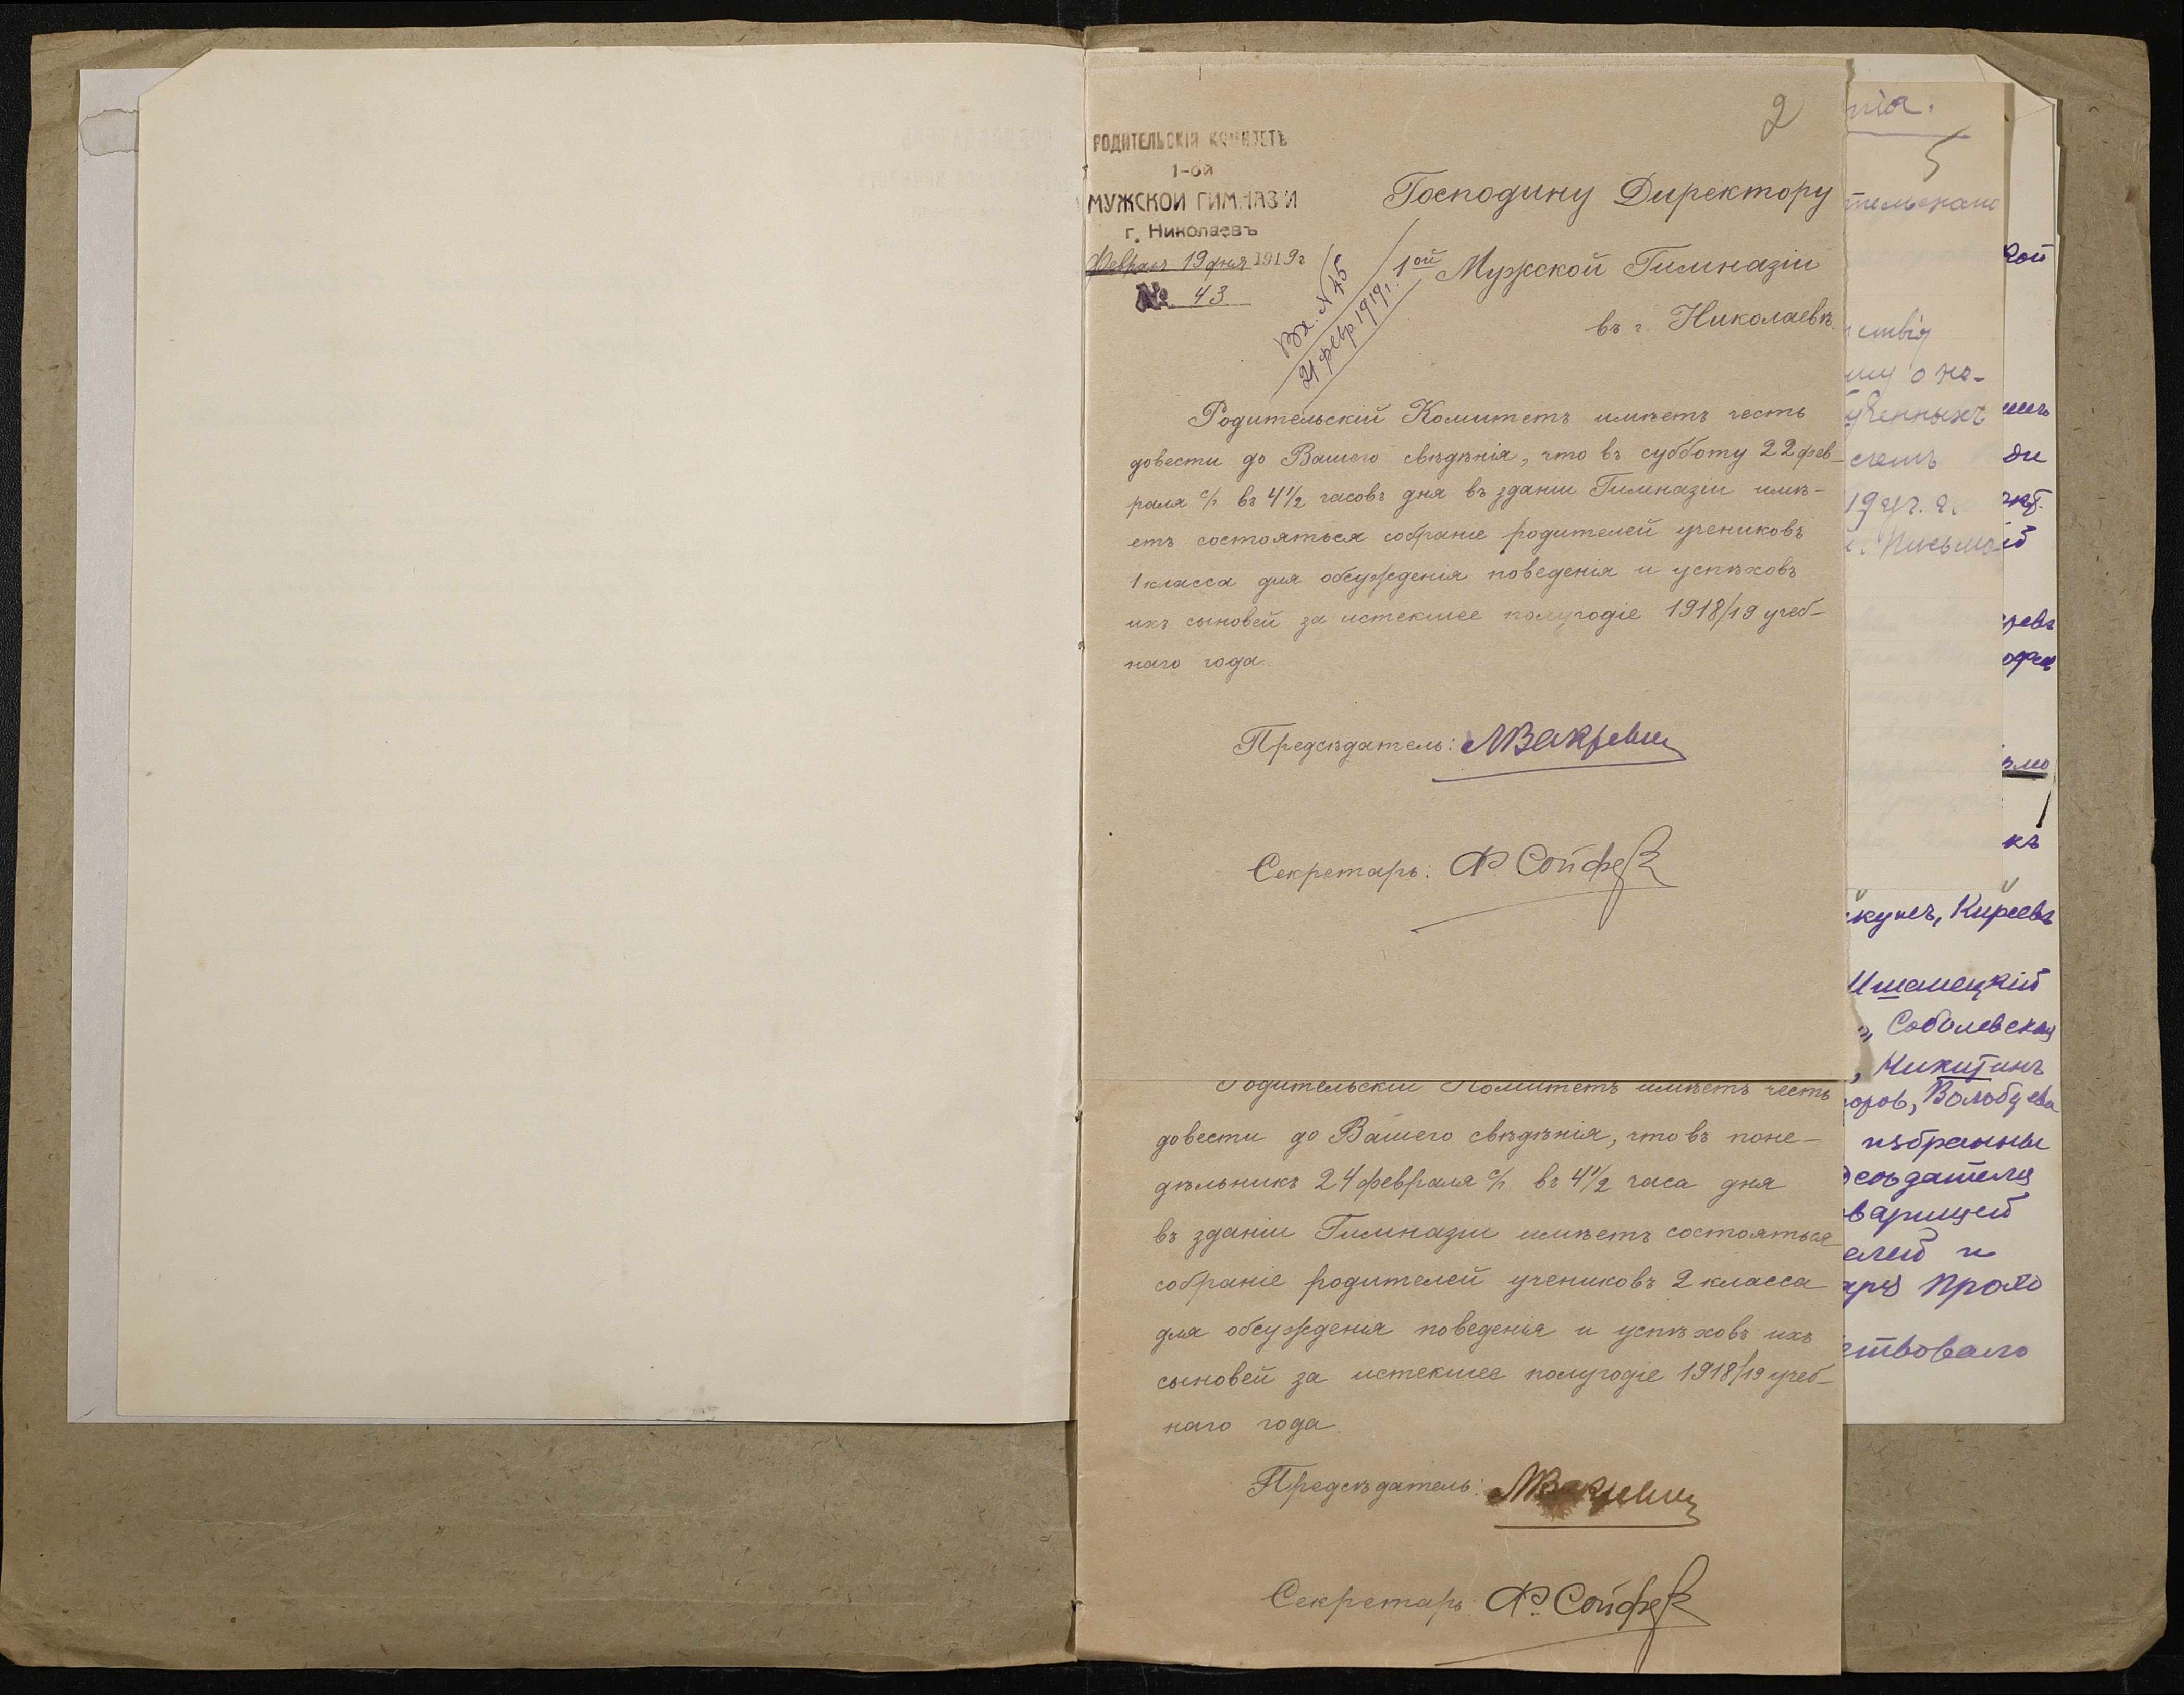 2
РОДИТЕЛЬСКІЙ КОМИТЕТЪ
1-ой
МУЖСКОЙ ГИМНАЗІИ
г. Николаевъ
Февраля 19 дня 1919 г
№ 43
Господину Директору
1ой Мужской Гимназіи
въ г. Николаевѣ.
Вх. N 75
21 февр. 1919 г.
Родительскій Комитетъ имѣетъ честь
довести до Вашего свѣдѣнія, что въ субботу 22 фев-
раля с/г. въ 4 1/2 часовъ дня въ зданіи Гимназіи имѣ-
етъ состояться собраніе родителей учениковъ
1 класса для обсужденія поведенія и успѣховъ
ихъ сыновей за истекшее полугодіе 1918/19 учеб-
наго года.
Предсѣдатель:
Секретарь: Ф. Сойфер
Родительскій Комитетъ имѣетъ честь
довести до Вашего свѣдѣнія, что въ поне-
дѣльникъ 24 февраля с/г. въ 4 1/2 часа дня
въ зданіи Гимназіи имѣетъ состояться
собраніе родителей учениковъ 2 класса
для обсужденія поведенія и успѣховъ ихъ
сыновей за истекшее полугодіе 1918/19 учеб-
наго года.
Предсѣдатель:
Секретарь: Ф. Сойфер
5
тельскаго
кой
ствія
му о не-
ученныхъ
счетъ
ди
19 уч. г.
Письмо
кунъ, Киреевъ
Ишанецкій
Соболевская
Никитинъ
Волобуева
избранны
сѣдателя
варищей
елей и
аря Прото
ствовало